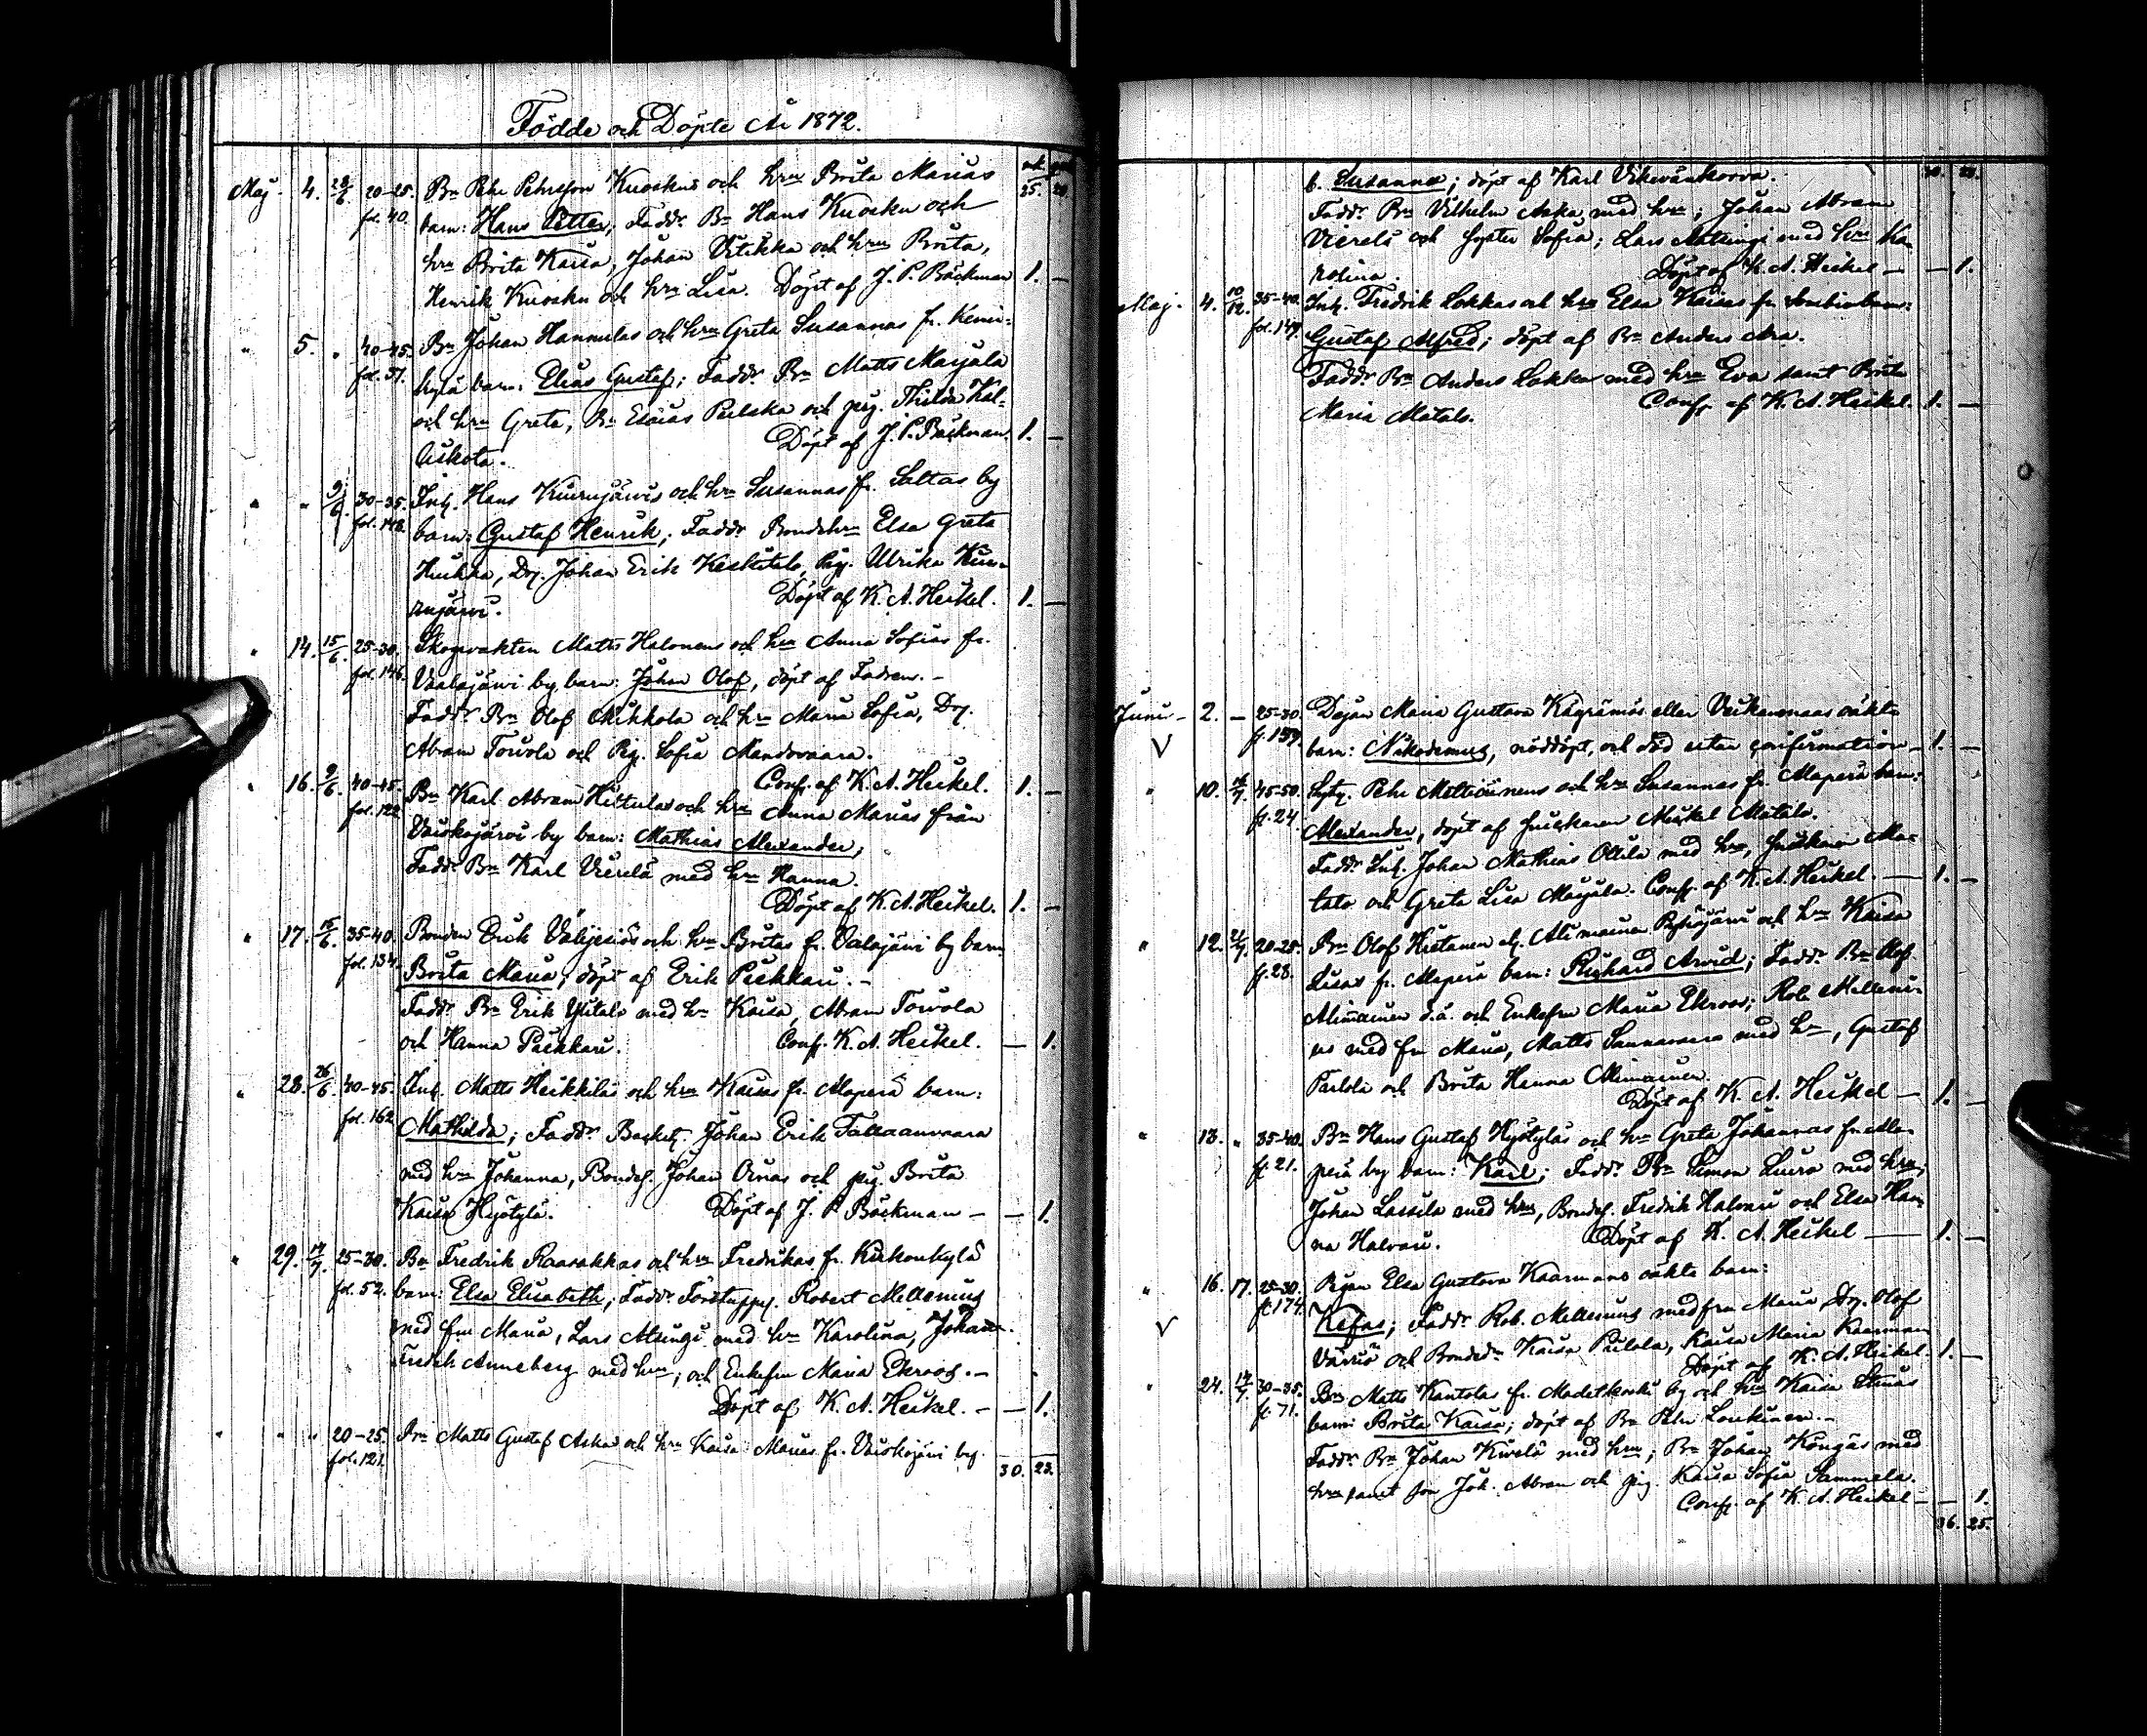 Födde och Döpte År 1872.
mk. pi
35. 20.
Maj. 4. 28/6 20-25. Bn Pehr Pehrsson Kuoskus och hru Brita Marias
fol. 40. barn: Hans Petter; Faddr. Bn Hans Kuosku och
hru Brita Kaisa, Johan Vitikka och hru Brita,
Henrik Kuosku och hru Lisa. Döpt af J. P. Bäckman 1. —
" 5. " 40-45. Bn Johan Hannulas och hru Greta Susannas fr. Kemi-
fol. 37. kylä barn: Elias Gustaf; Faddr Bn Matts Marjala
och hru Greta, Bn Esaias Pulska och pig. Thilda Kal-
Döpt af J. P. Bäckman. 1. —
" " 9/6 30-35. Inh. Hans Kiurujärvis och hru Susannas fr. Sattas by
fol. 148. barn: Gustaf Henrik; Faddr Bondehru Elsa Greta
Huhka, Drg. Johan Erik Keskitalo, Pig. Ulrika Kiu-
rujärvi. Döpt af K. A. Heikel. 1. —
" 14. 15/6. 25-30. Skogsvakten Matts Halonens och hru Anna Sofias fr.
fol. 146. Vaalajärvi by barn: Johan Olof, döpt af Fadren. -
Faddr Bn Olof Mikkola och hru Maria Sofia, Drg.
Abram Torvola och Pig. Sofia Mandovaara.
Conf. af K. A. Heikel. 1. —
" 16. 9/6. 40-45. Bn Karl Abram Hietulas och hru Anna Marias från
fol. 122 Vaiskojärvi by barn: Mathias Alexander;
Faddr Bn Karl Vierelä med hru Hanna.
Döpt af K. A. Heikel. 1. —
" 17. 15/6. 35-40. Bonden Erik Välijesiös och hru Britas fr. Vaalajärvi by barn
fol. 134. Brita Maria; döpt af Erik Peikkari. -
Faddr Bn Erik Ylitalo med hru Kaisa, Abram Torvola
och Hanna Paikkari. Conf. K. A. Heikel. — 1.
" 28. 26/6. 40-45. Inh. Matts Heikkiläs och hru Kaisas fr. Alaperä barn:
fol. 162 Mathilda; Faddr. Johan Erik Tallaanvaara
med hru Johanna, Bondes. Johan Ounas och pig. Brita
Kaisa Hyötylä. Döpt af J. P. Bäckman — — 1.
" 29. 14/7. 25-30. Bn Fredrik Raasakkas och hru Fredrikas fr. Kirkonkylä
fol. 52. barn: Elsa Elisabeth; Faddr Robert Mellenius
med fru Maria, Lars Alsingi med hru Karolina, Johan
Fredrik Anneberg med hru; och Enkefru Maria Ekroos. -
Döpt af K. A. Heikel. — — 1.
" " " 20-25. Bn Matts Gustaf Askas och hru Kaisa Marias fr. Vaiskojärvi by.
fol. 121.
30. 23.
30. 23.
b. Susanna; döpt af Karl
Faddr. Bn Vilhelm Aska med hru; Johan Abram
Vierelä och syster Sofia; Lars Alsingi med hru Ka-
rolina. Döpt af K. A. Heikel — — 1.
Maj. 4. 10/12. 35-40. Inh. Fredrik Lokkas och hru Elsa Kaisas fr. barn:
fol. 149. Gustaf Alfred; döpt af Bn Anders Ara.
Faddr. Bn Anders Lokka med hru Eva samt Brita
Maria Matalo. Conf. af K. A. Heikel. 1. —
Juni — 2. — 25-30. Dejan Maria Gustava oäkta
f. 159. barn: Nikodemus, nöddöpt, och död utan confirmation — 1. —
" 10. 45-50. Pehr och hru Susannas fr. Alaperä barn:
f. 24. Alexander, döpt af Mickel Matalo.
Faddr. Inh. Johan Mathias Ollila med hru, Ma-
talo och Greta Lisa Marjala. Conf. af K. A. Heikel. — 1. —
" 12. 21/7. 20-25. Bn Olof och hru Kaisa
f. 28. Lisas fr. Alaperä barn: Richard Arvid; Faddr. Bn Olof
Alimainen d.ä. och Enkefru Maria Ekroos; Rob. Melleni-
us med fru Maria, Matts Sannavaara med hru, Gustaf
och Brita Hanna Alimainen.
Döpt af K. A. Heikel — 1. —
" 13. " 35-40. Bn Hans Gustaf Hyötyläs och hru Greta Johannas fr. Ala-
f. 21. perä by barn: Karl; Faddr. Bn Simon Luiro med hru;
Johan Lassila med hru, Bondes. Fredrik Halvari och Elsa Han-
na Halvari. Döpt af K. A. Heikel — 1. —
" 16. 17. 25-30. Pigan Elsa Gustava Kaarmans oäkta barn:
f. 174. Kefas; Faddr Rob. Mellenius med fru Maria, Drg. Olof
Värriö och Bondedr Kaisa, Kaisa Maria Kaarman
Döpt af K. A. Heikel 1. —
" 24. 14/7 30-35. Bn Matts Kantolas fr. Madetkoski by och hru Kaisa Stinas
f. 71. barn: Brita Kaisa; döpt af Bn Pehr Loukinen. -
Faddr Bn Johan Kivelä med hru; Bn Johan Köngäs med
hru samt son Joh. Abram och pig. Kaisa Sofia Sammela.
Conf. af K. A. Heikel — — 1.
36. 25.